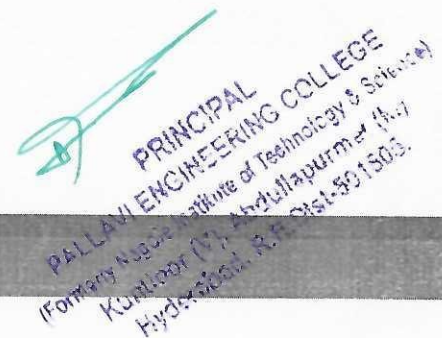 PRINCIPAL
PALLAVI ENGINEERING COLLEGE
(Formerly Institute of Technology & Science)
Kuntloor (V), Abdullapurmet (M),
Hyderabad, R.R. Dist-501505.